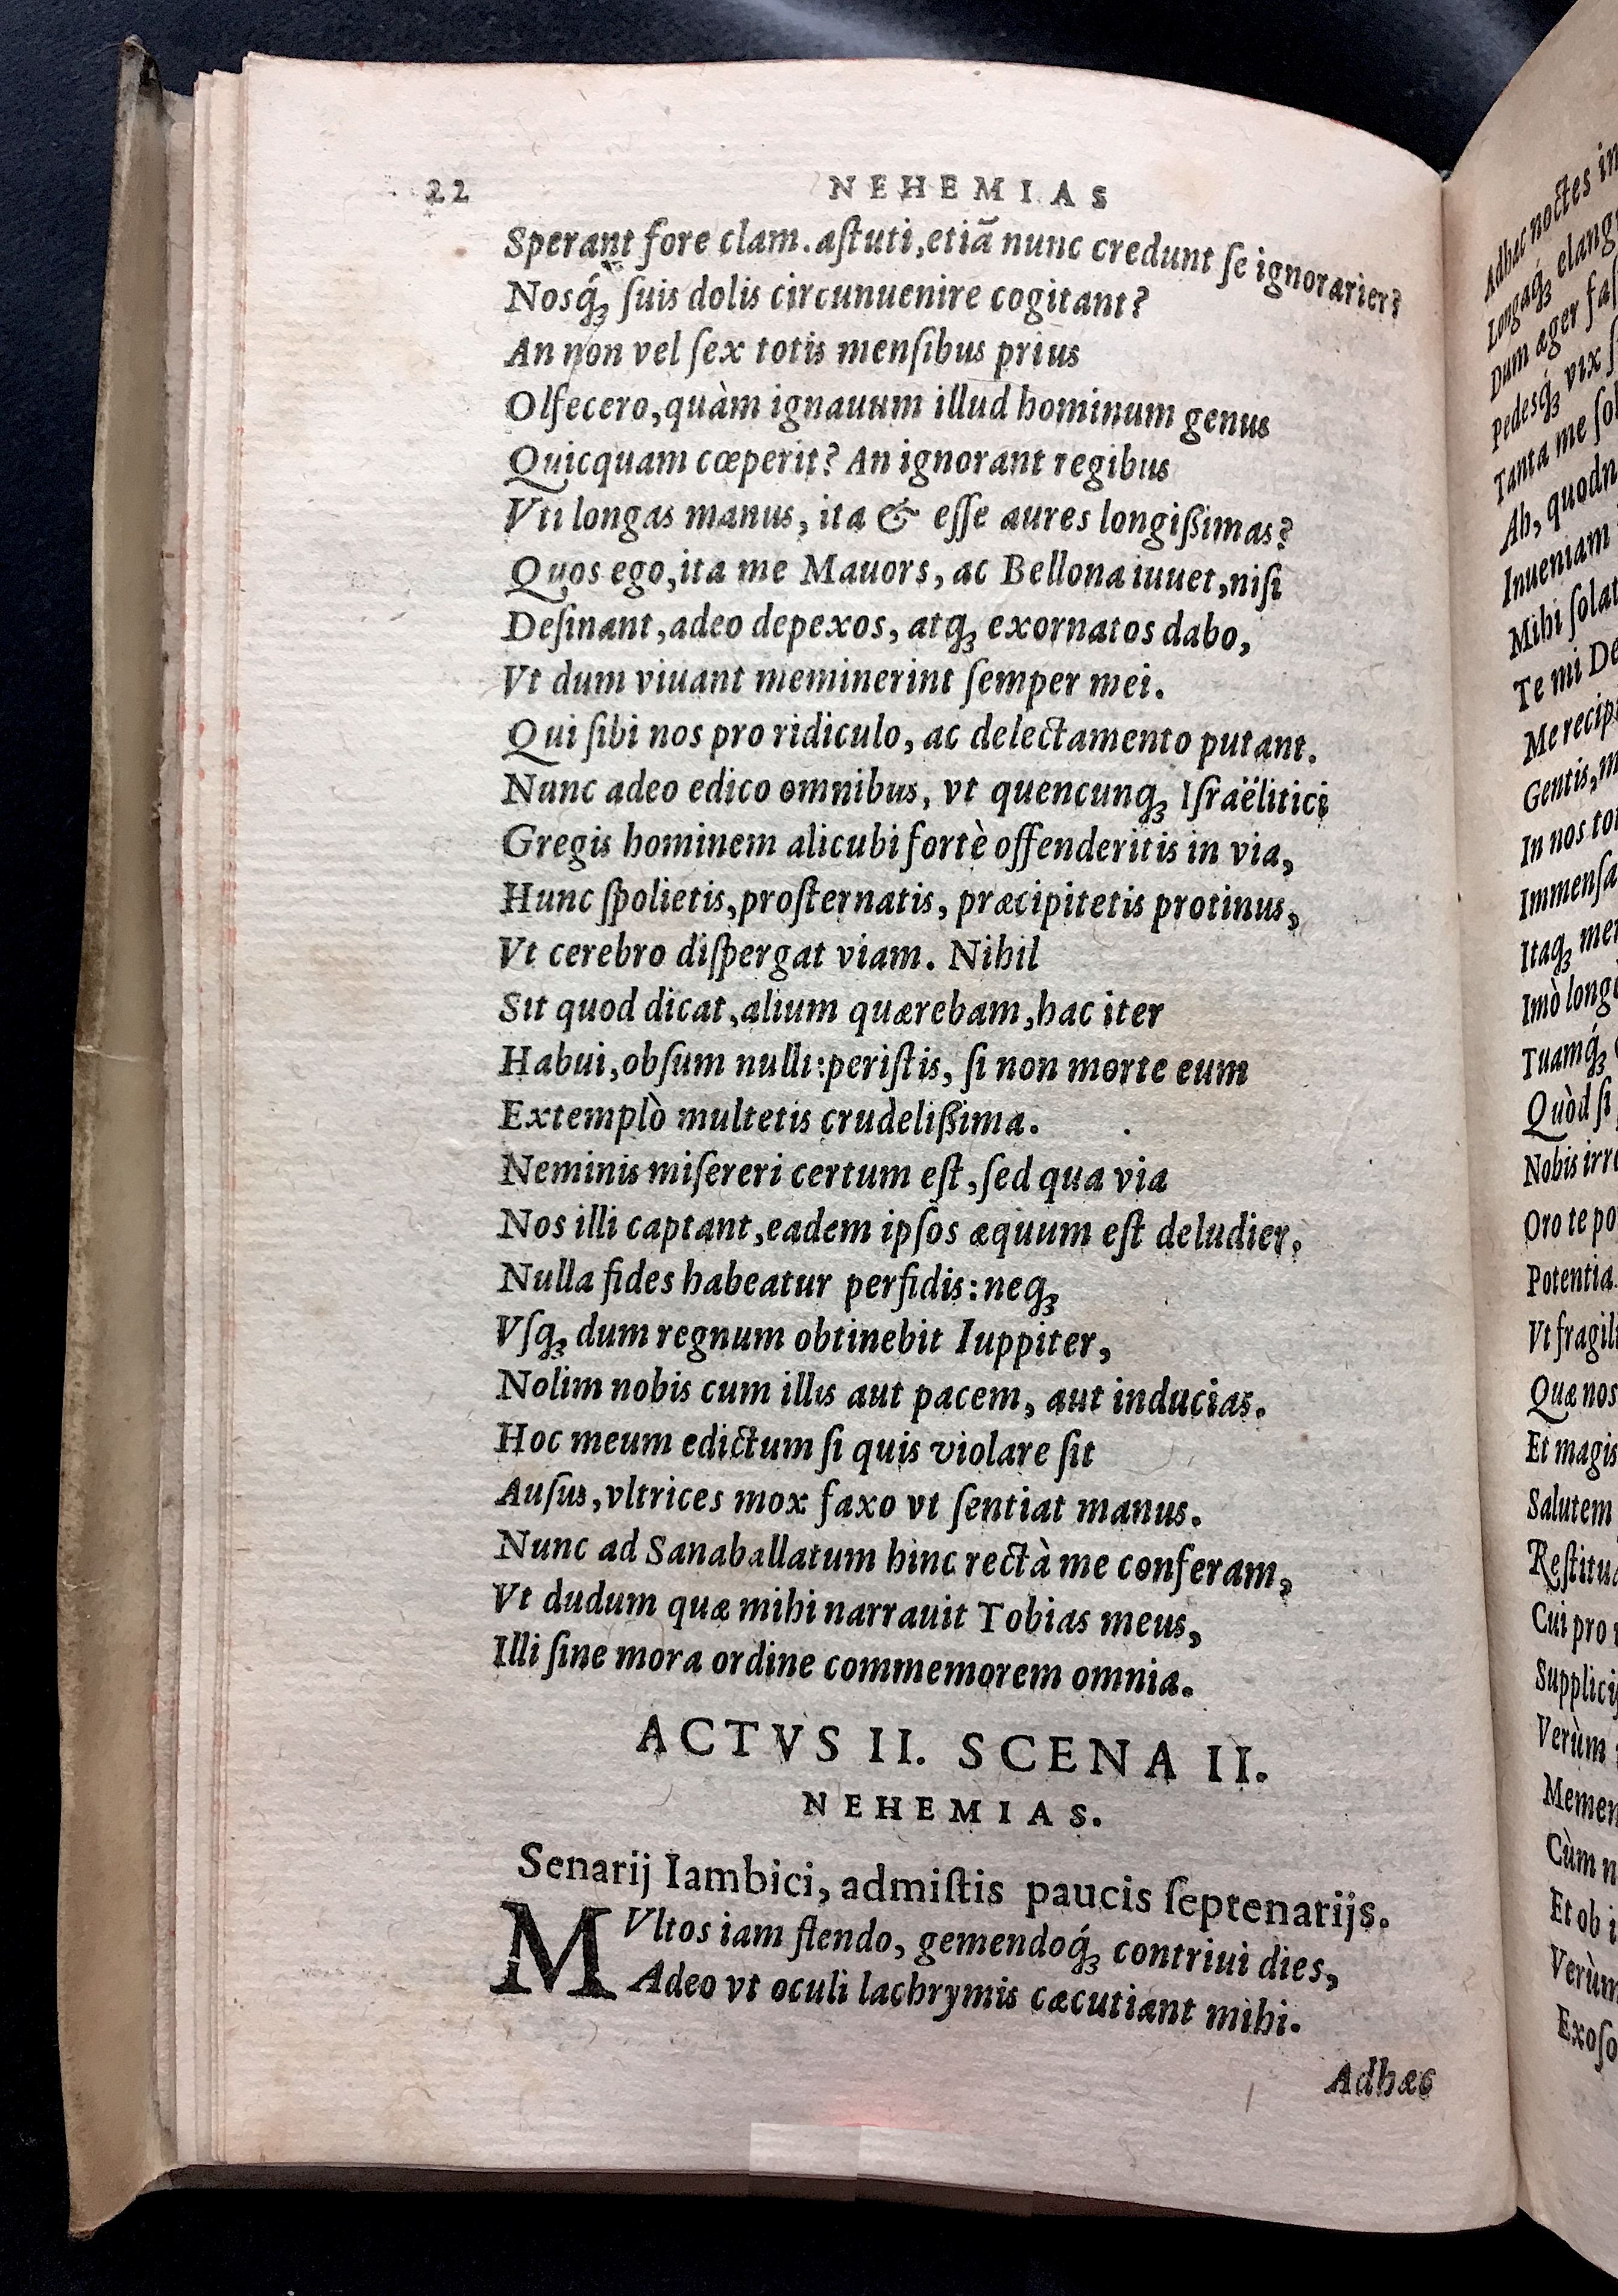 22 NEHEMIAS
Sperant fore clam. aſtuti, etiã nunc credunt ſe ignorarier?
Nosq́ꝫ ſuis dolis circunuenire cogitant?
An non vel ſex totis menſibus prius
Olfecero, quàm ignauum illud hominum genus
Quicquam cœperit? An ignorant regibus
Vti longas manus, ita & eſſe aures longißimas?
Quos ego, ita me Mauors, ac Bellona iuuet, niſi
Deſinant, adeo depexos, atqꝫ exornatos dabo,
Vt dum viuant meminerint ſemper mei.
Qui ſibi nos pro ridiculo, ac delectamento putant.
Nunc adeo edico omnibus, vt quencunqꝫ Iſraëlitici
Gregis hominem alicubi fortè offenderitis in via,
Hunc ſpolietis, proſternatis, præcipitetis protinus,
Vt cerebro diſpergat viam. Nihil
Sit quod dicat, alium quærebam, hac iter
Habui, obſum nulli: periſtis, ſi non morte eum
Extemplò multetis crudelißima.
Neminis miſereri certum eſt, ſed qua via
Nos illi captant, eadem ipſos æquum eſt deludier,
Nulla fides habeatur perfidis: neqꝫ
Vſqꝫ dum regnum obtinebit Iuppiter,
Nolim nobis cum illis aut pacem, aut inducias.
Hoc meum edictum ſi quis violare ſit
Auſus, vltrices mox faxo vt ſentiat manus.
Nunc ad Sanaballatum hinc rectà me conferam,
Vt dudum quæ mihi narrauit Tobias meus,
Illi ſine mora ordine commemorem omnia.
ACTVS II. SCENA II.
NEHEMIAS.
Senarij Iambici, admiſtis paucis ſeptenarijs.
MVltos iam flendo, gemendoq́ꝫ contriui dies,
Adeo vt oculi lachrymis cæcutiant mihi.
Adhæc
Adhæc noctes in
Longaq́ꝫ elang
Dum æger
Pedesq́ꝫ vix
Tanta me
Ah, quodn
Inueniam
Mihi ſolat
Te mi De
Me recip
Gentis,
In nos
Immenſa
Itaqꝫ
Imò long
Tuamq́ꝫ
Quòd ſi
Nobis irr
Oro te po
Potentia
Vt fragil
Quæ nos
Et magis
Salutem
Reſtitu
Cui pro
Supplici
Verùm
Memen
Cùm n
Et ob i
Verùm
Exoſo